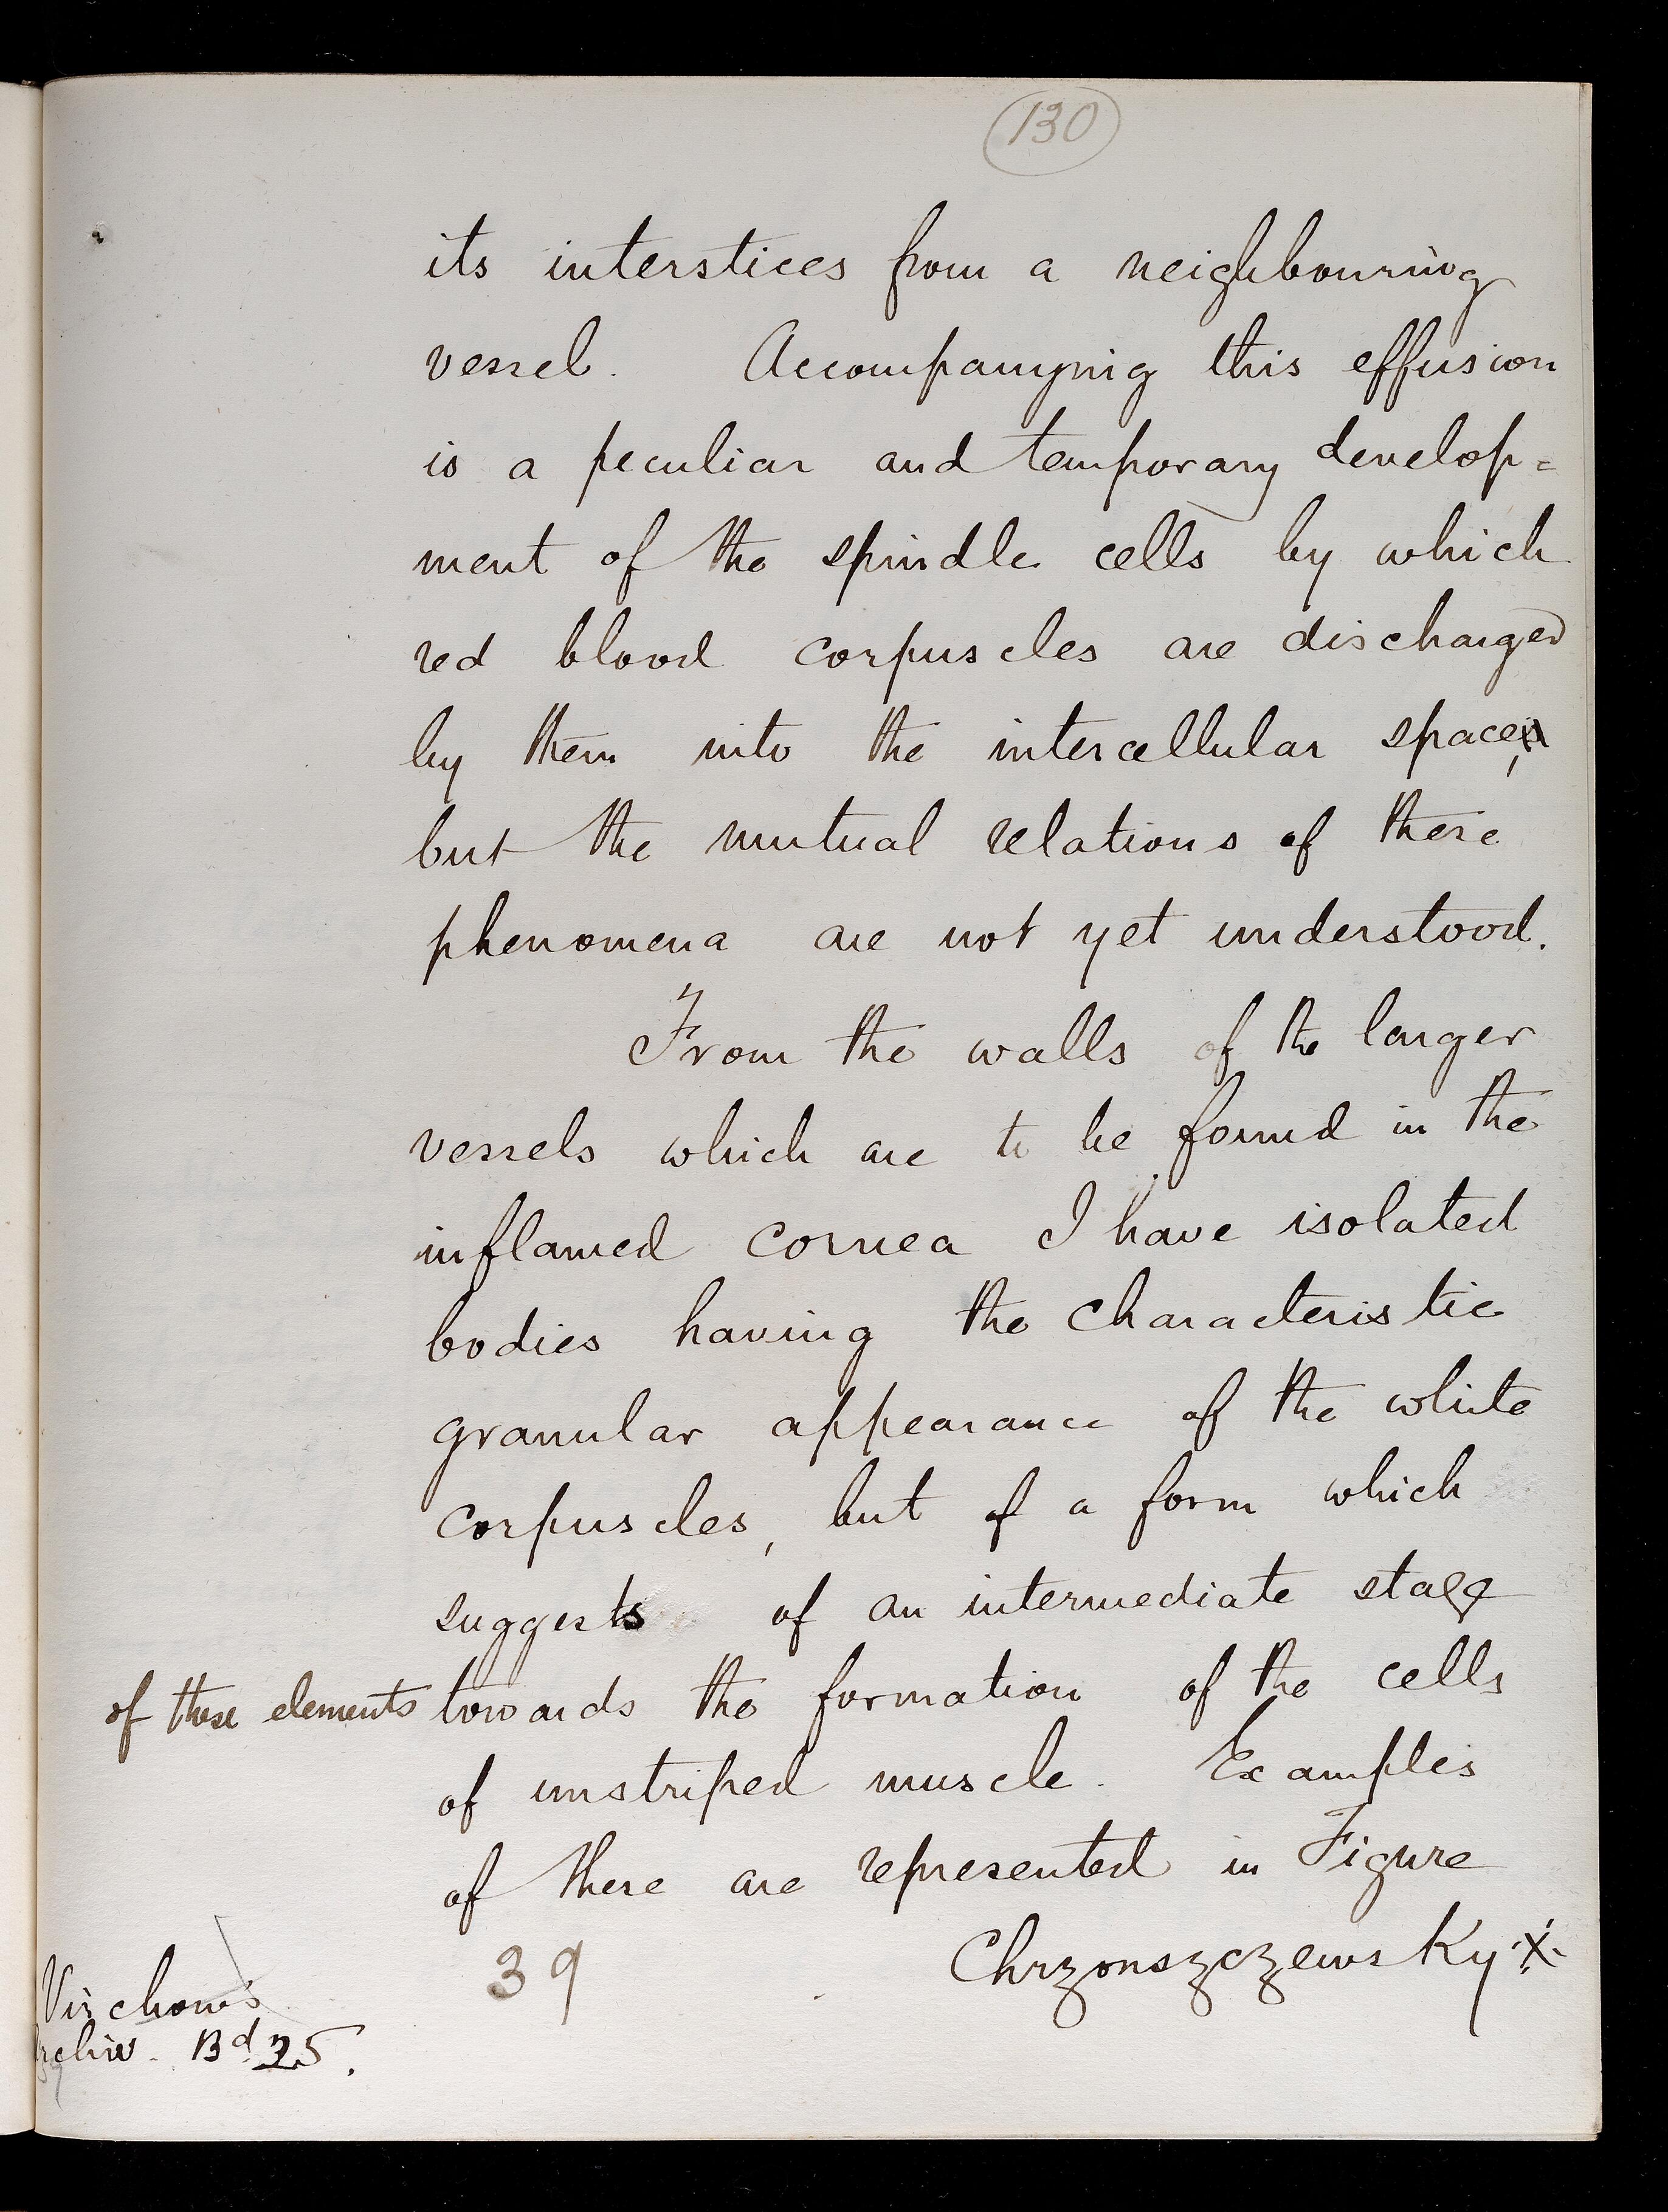 130
its interstices from a neighbouring
vessel. Accompanying this effusion
is a peculiar and temporary develop=
ment of the spindle cells by which
red blood corpuscles are discharged
by them into the intercellular space,
but the mutual relations of these
phenomena are not yet understood.
From the walls of the larger
vessels which are to be found in the
inflamed cornea I have isolated
bodies having the characteristic
granular appearance of the white
corpuscles, but of a form which
suggests of an intermediate stage
of these elements towards the formation of the cells
of unstriped muscle. Examples
of these are represented in Figure
39 Chrzonszczewsky ※
Virchow's
Archiv. Bd 35.